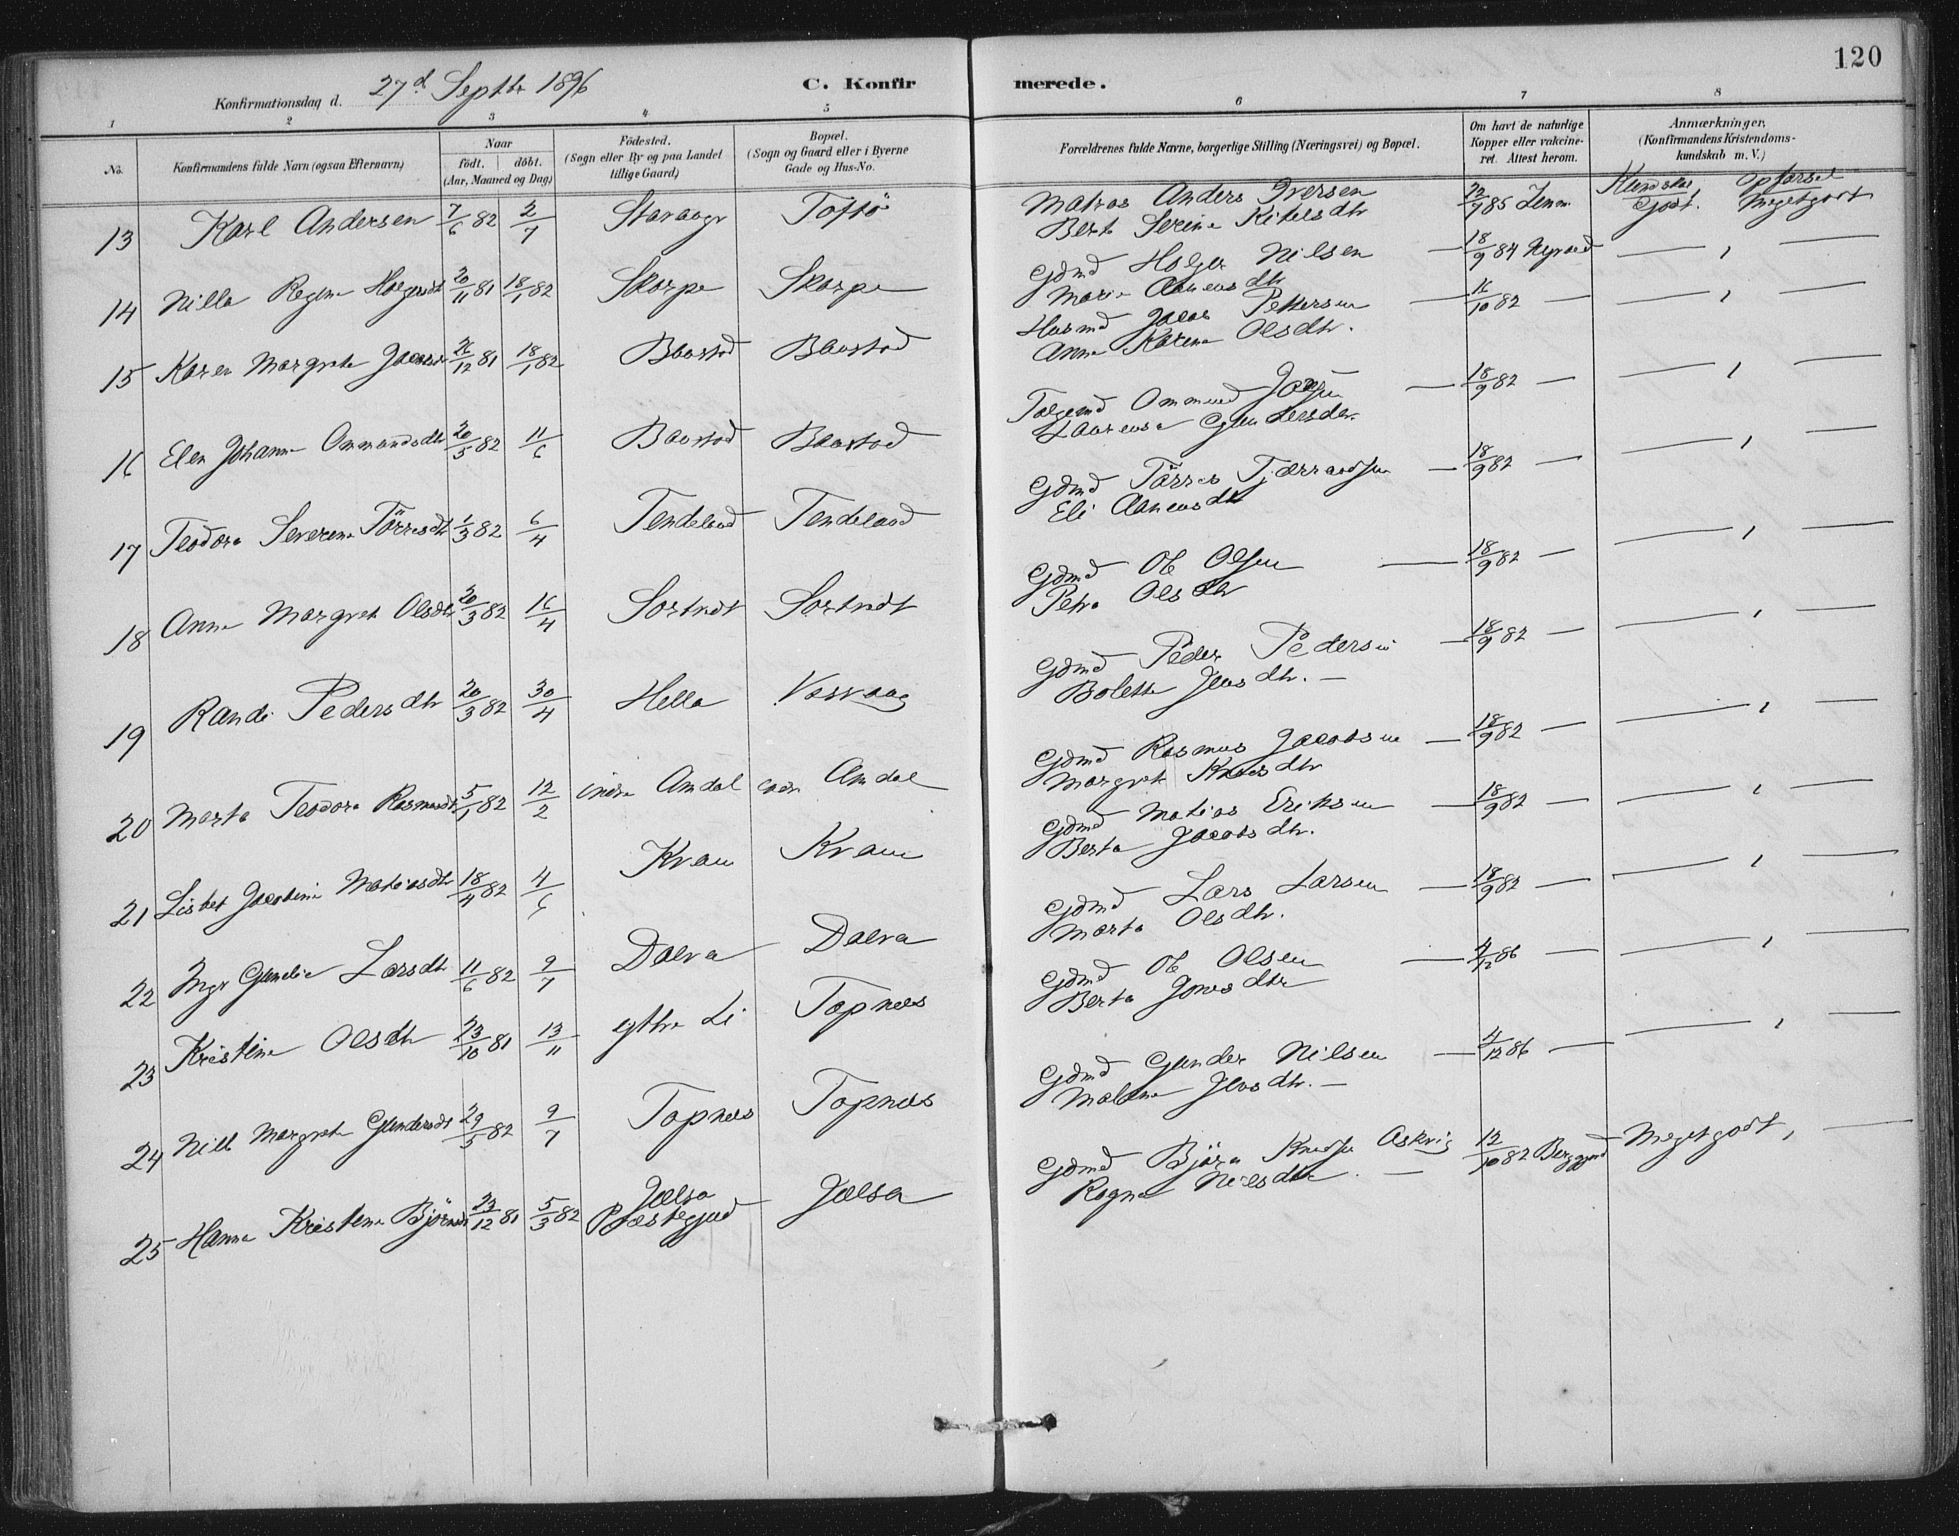 120
Konfirmationsdag d. 27d Septbr 1896
C. Konfirmerede.
1 2 3 4 5 6 7 8
No. Konfirmandens fulde Navn (ogsaa Efternavn) Naar födt. döbt. (Aar, Maaned og Dag) Födested. (Sogn eller By og paa Landet tillige Gaard) Bopæl. (Sogn og Gaard eller i Byerne Gade og Hus-No. Forældrenes fulde Navne, borgerlige Stilling (Næringsvei) og Bopæl. Om havt de naturlige Kopper eller vakcineret. Attest herom. Anmærkninger, (Konfirmandens Kristendomskundskab m. V.)
13 Karl Andersen 7/6 82 2/7 Toftö Matros Anders Iversen 12/7 85 Kundskab Godt. Opförsel Megetgodt
Berta Serine Kitelsdtr
14 Nilla Regine Holgersdt 20/11 81 18/1 82 Skorpe Skorpe Gdmd Holger Nilsen 18/9 84
Marie Aanensdtr
15 Karen Margrete Jacobsdt 26/12 81 18/1 82 Baastad Baastad Husmd Jacob Pettersen 16/10 82
Anne Karine Olsdtr.
16 Elen Johanne Ommundsdtr 20/5 82 11/6 Baastad Baastad Ommund 18/9 82
Laurensa Gundersdtr.
17 Teodora Severine Törresdtr 1/3 82 6/4 Tendeland Tendeland Gdmd Törres Tjærrandsen 18/9 82
Eli Aanensdtr
18 Anne Margret Olsdtr 20/3 82 16/4 Sortvedt Sortvedt Gdmd Ole Olsen 18/9 82
Petra Olsdtr
19 Randi Pedersdtr 20/3 82 30/4 Hella Vasvaag Gdmd Peder Pedersen 18/9 82
Bolette Jensdtr.
20 Marta Teodora Rasmusdt 5/1 82 12/2 indre Amdal indr Amdal Gdmd Rasmus Jacobsen 18/9 82
Margret Knudsdtr
21 Lisbet Jacobine Matiasdtr 18/4 82 4/6 Kvam Kvam Gdmd Matias Eriksen 18/9 82
Berta Jacobsdtr.
22 Ingr Gundia Larsdtr 11/6 82 9/7 Dalva Dalva Gdmd Lars Larsen 18/9 82
Marta Olsdtr.
23 Kristine Olsdtr 23/10 81 13/11 ythre Li Topnes Gdmd Ole Olsen 4/12 86
Berta Jonesdtr
24 Nille Margrete Gundersdt 29/5 82 9/7 Topnes Topnes Gdmd Gunder Nilsen 4/12 86
Malene Jensdtr.
25 Hanna Kristine Björnsdt 23/12 81 5/3 82 Jælsa Præstegjeld Jælsa Gdmd Björn Knudsen Askvig 12/10 82 Megetgodt,
Ragna Nilsdtr.